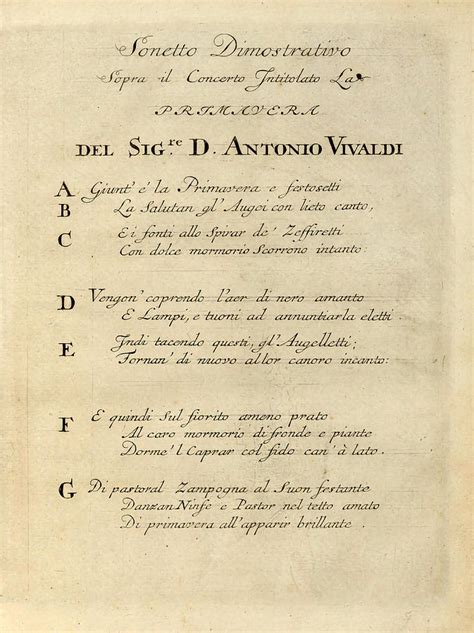 Sonetto Dimostrativo
Sopra il Concerto Intitolato La
PRIMAVERA
DEL SIG.re D. ANTONIO VIVALDI
A Giunt' è la Primavera e festosetti
B La Salutan gl' Augei con lieto canto,
C E i fonti allo Spirar de' Zeffiretti
Con dolce mormorio Scorrono intanto:
D Vengon' coprendo l'aer di nero amanto
E Lampi, e tuoni ad annuntiarla eletti
E Indi tacendo questi, gl' Augelletti;
Tornan' di nuovo al lor canoro incanto:
F E quindi sul fiorito ameno prato
Al caro mormorio di fronde e piante
Dorme 'l Caprar col fido can' à lato.
G Di pastoral Zampogna al Suon festante
Danzan Ninfe e Pastor nel tetto amato
Di primavera all' apparir brillante.